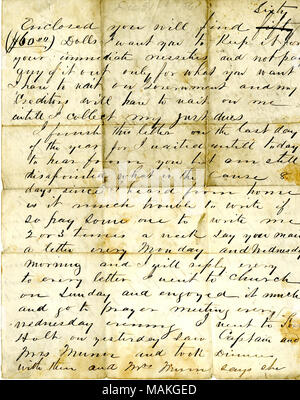 Sixty
Enclosed you will find fifty
($60.00) Dolls I want you to Keep it for
your immediate nessities and not pay
any of it out only for what you want
I have to wait on Government and my
Creditors will have to wait on me
untill I collect my just dues
I finish this letter on the last day
of the year for I waited untill today
to hear from you but am still
disapointed what is the Cause 8
days since I heard from home
is it much trouble to write if
so pay some one to write me
2 or 3 times a week say you mail
a letter every Monday and Wednesday
morning and I will reply
to every letter I went to Church
on Sunday and enjoyed it much
and go to prayer meeting every
wednesday evening I went to
Holt on yesterday saw Captain and
Mrs Munn and took Dinner
with them and Mrs Munn says she
alamy
Image ID: MAKGED
www.alamy.com